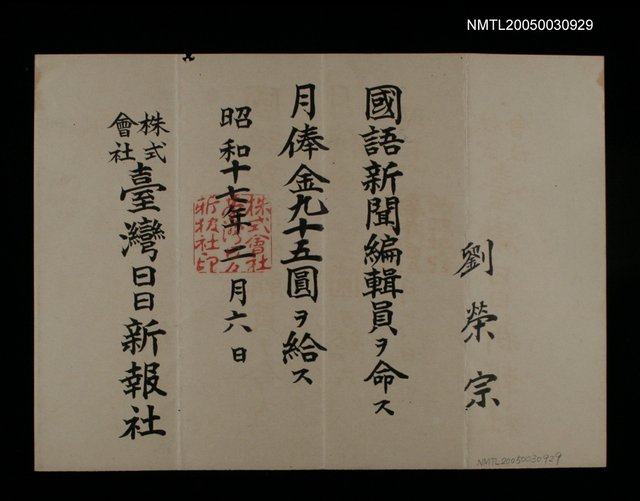 NMTL20050030929
劉榮宗
國語新聞編輯員ヲ命ス
月俸金九十五圓ヲ給ス
昭和十七年二月六日
株式會社臺灣日日新報社
株式會社
新報社印
NMTL20050030929